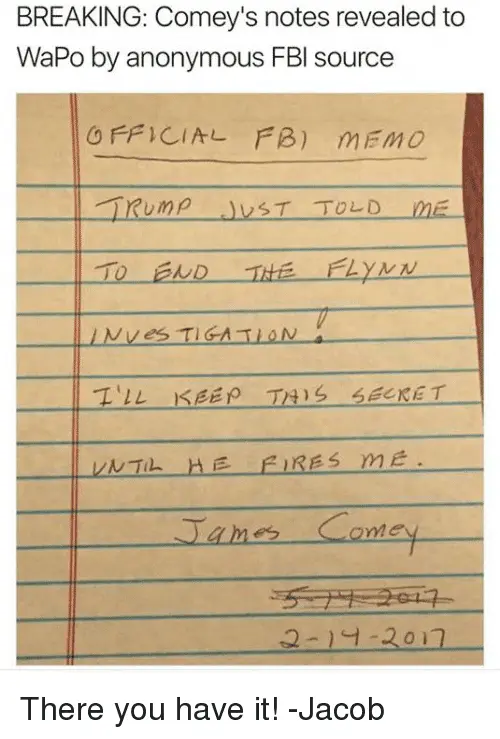 BREAKING: Comey's notes revealed to
WaPo by anonymous FBI source
OFFICIAL FBI MEMO
TRUMP JUST TOLD ME
TO END THE FLYNN
INVESTIGATION!
I'LL KEEP THIS SECRET
UNTIL HE FIRES ME.
James Comey
5-14-2017
2-14-2017
There you have it! -Jacob